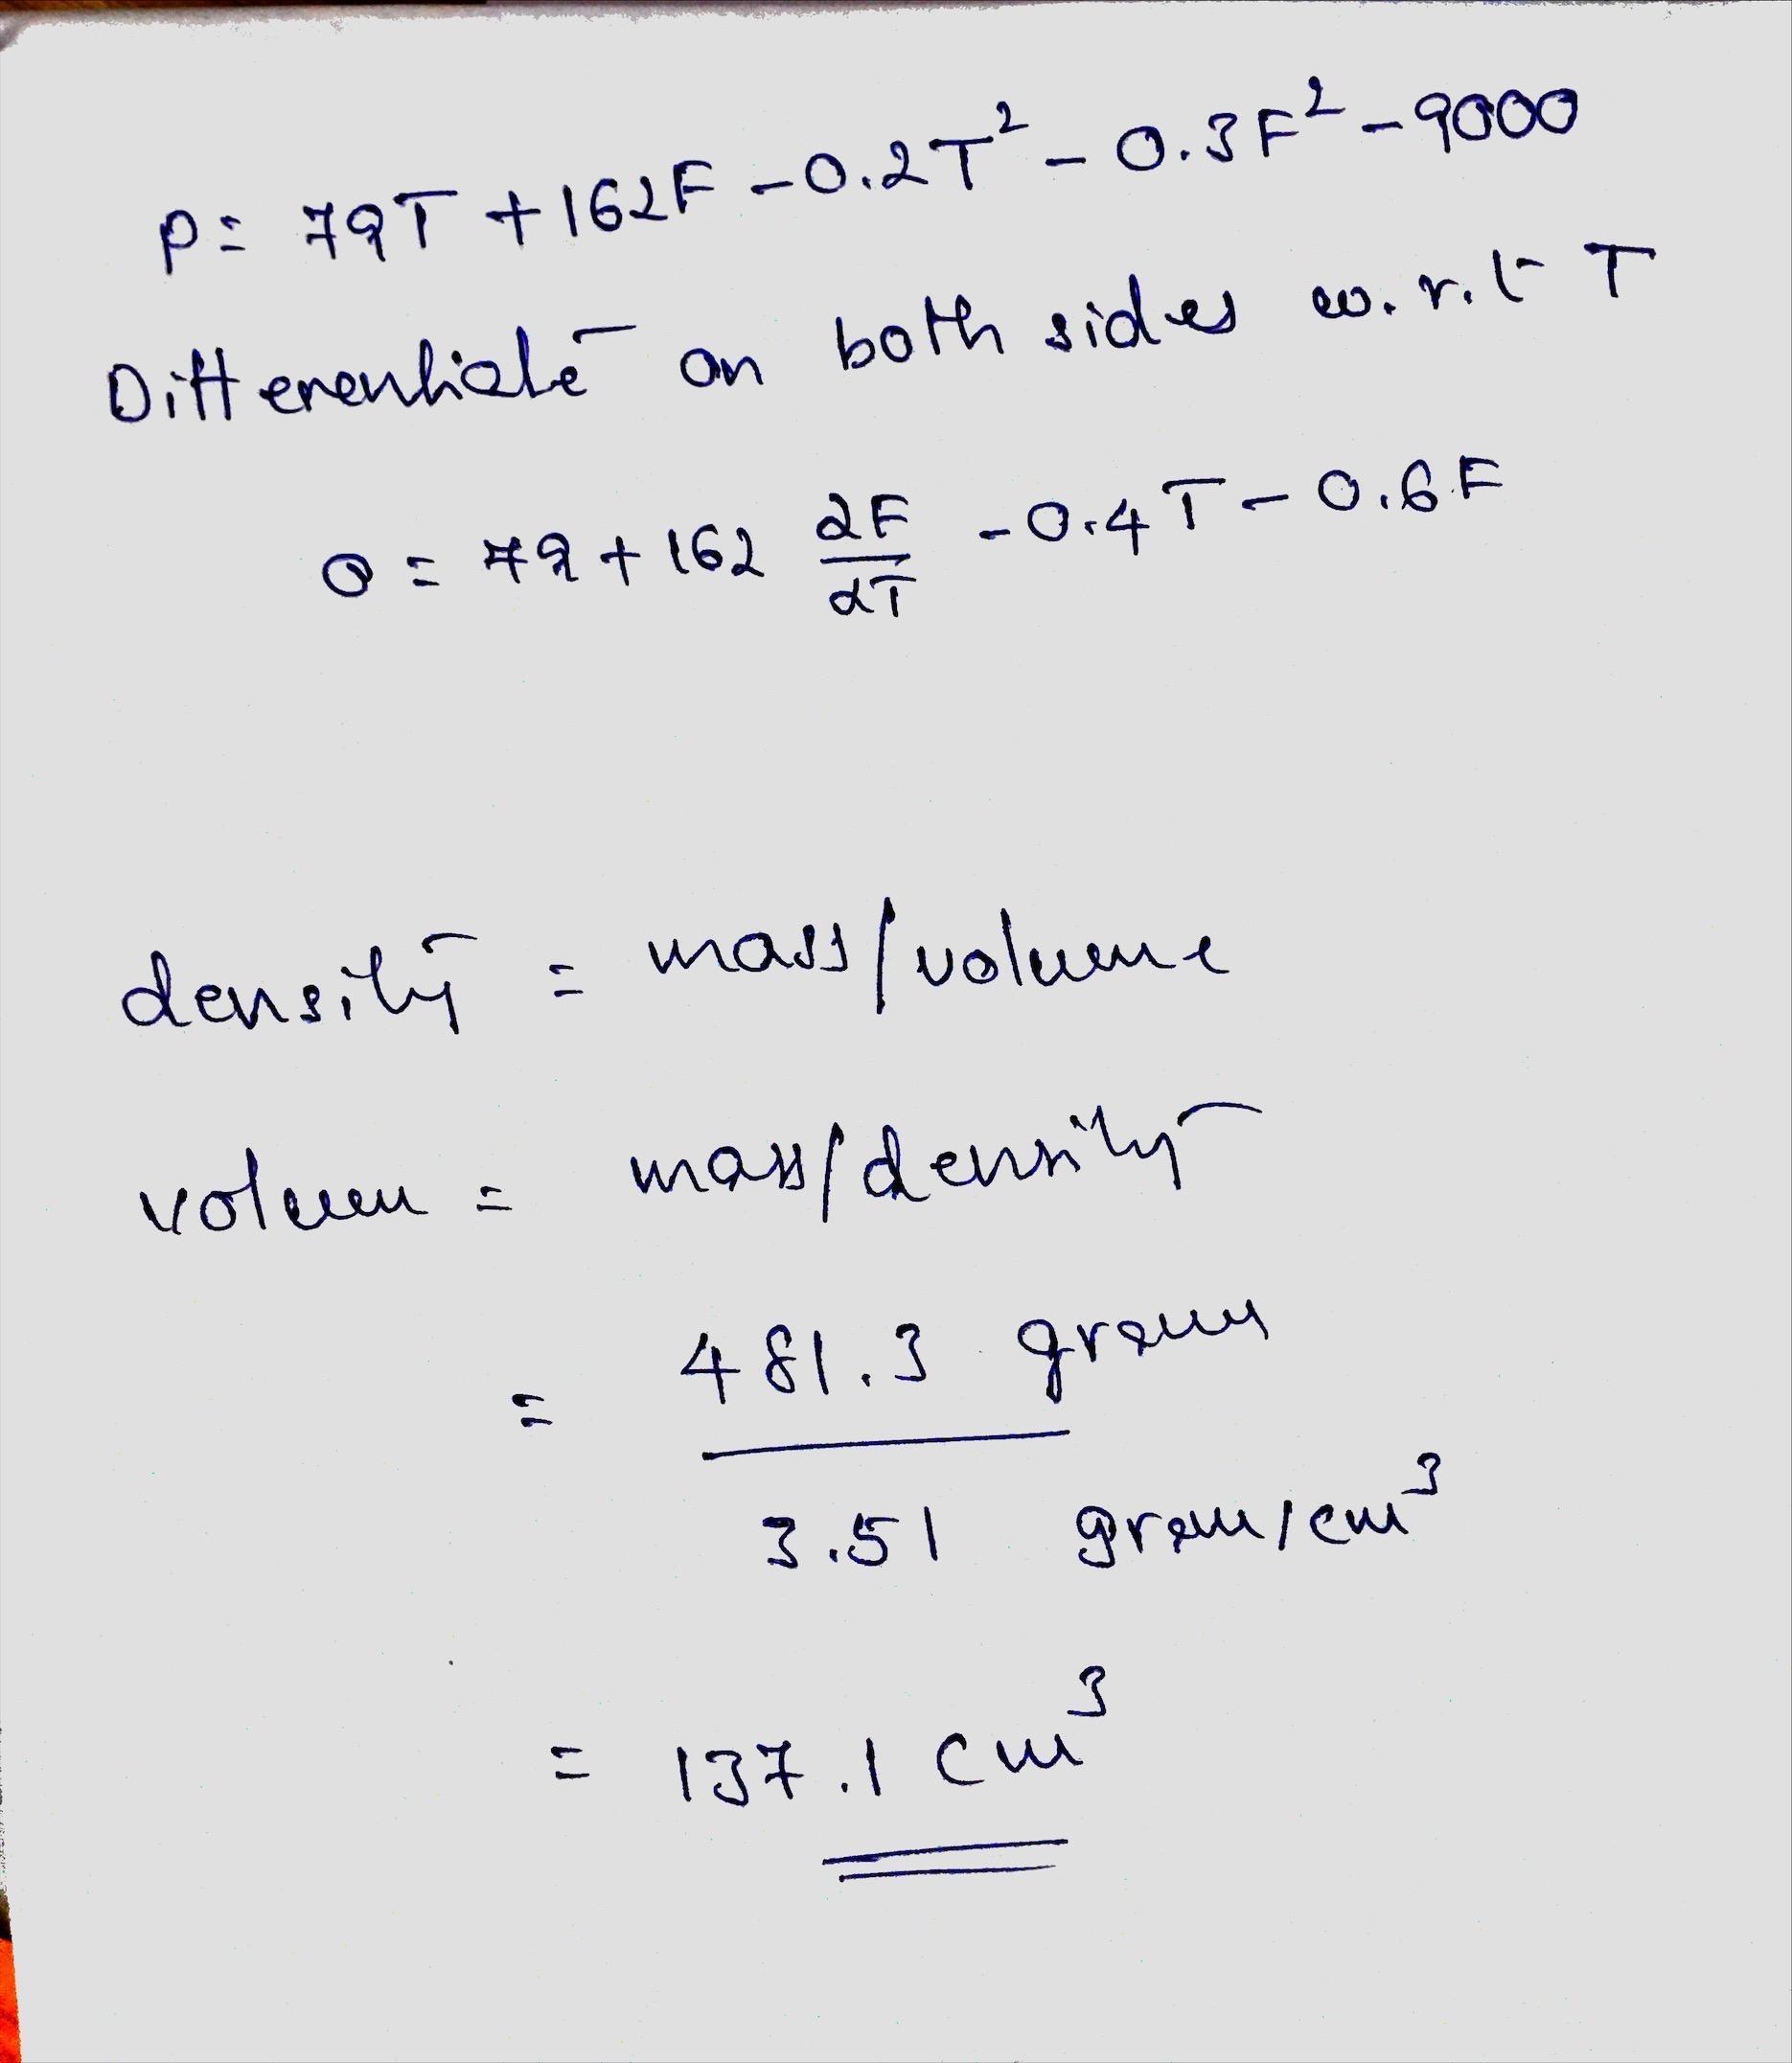 P = 79T + 162F - 0.2T² - 0.3F² - 9000
Differentiate on both sides w.r.t T
0 = 79 + 162 dF/dT - 0.4T - 0.6F
density = mass/volume
volum = mass/density
= 481.3 grams
3.51 gram/cm³
= 137.1 cm³